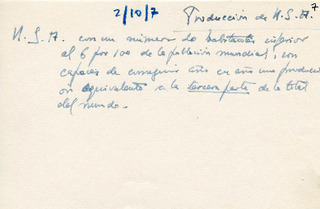 2/10/7 Producción de U.S.A. 7
U.S.A. con un número de habitantes inferior
al 6 por 100 de la población mundial, son
capaces de conseguir año en año una producci
ón equivalente a la tercera parte de la total
del mundo.